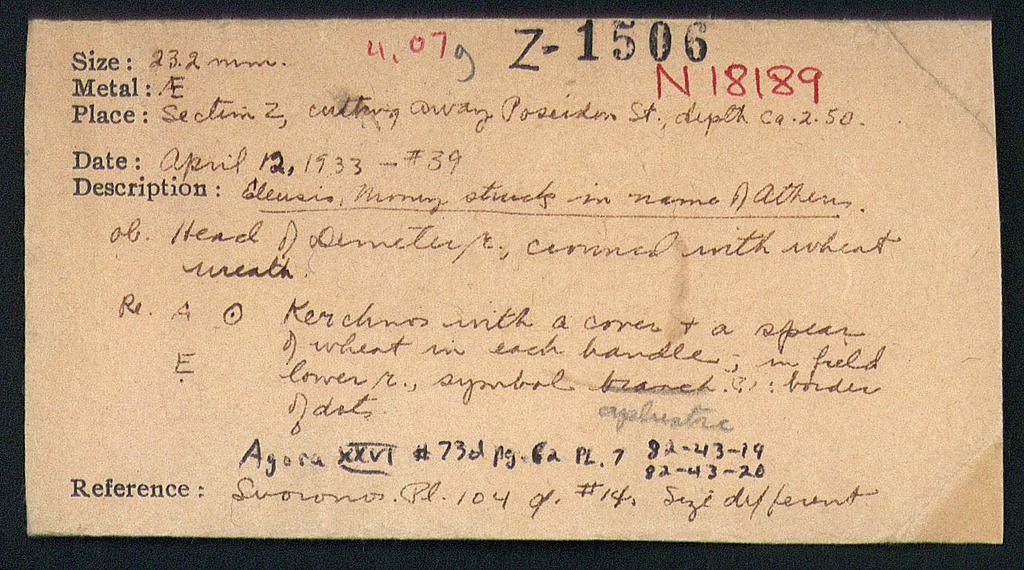 4.07 g Z-1506
Size: 23.2 mm.
N 18189
Metal: Æ
Place: Section Z, cutting away Poseidon St., depth ca. 2.50.
Date: April 12, 1933 - #39
Description: Eleusis, Money struck in name of Athens.
ob. Head of Demeter r., crowned with wheat
wreath.
Re. A Θ Kerchnos with a cover + a spear
of wheat in each handle; in field
E lower r., symbol branch (?): border
of dots.
aplustre
Agora XXVI #73d pg. 62 PL. 7 82-43-19
82-43-20
Reference: Svoronos. Pl. 104 cf. #14. Size different